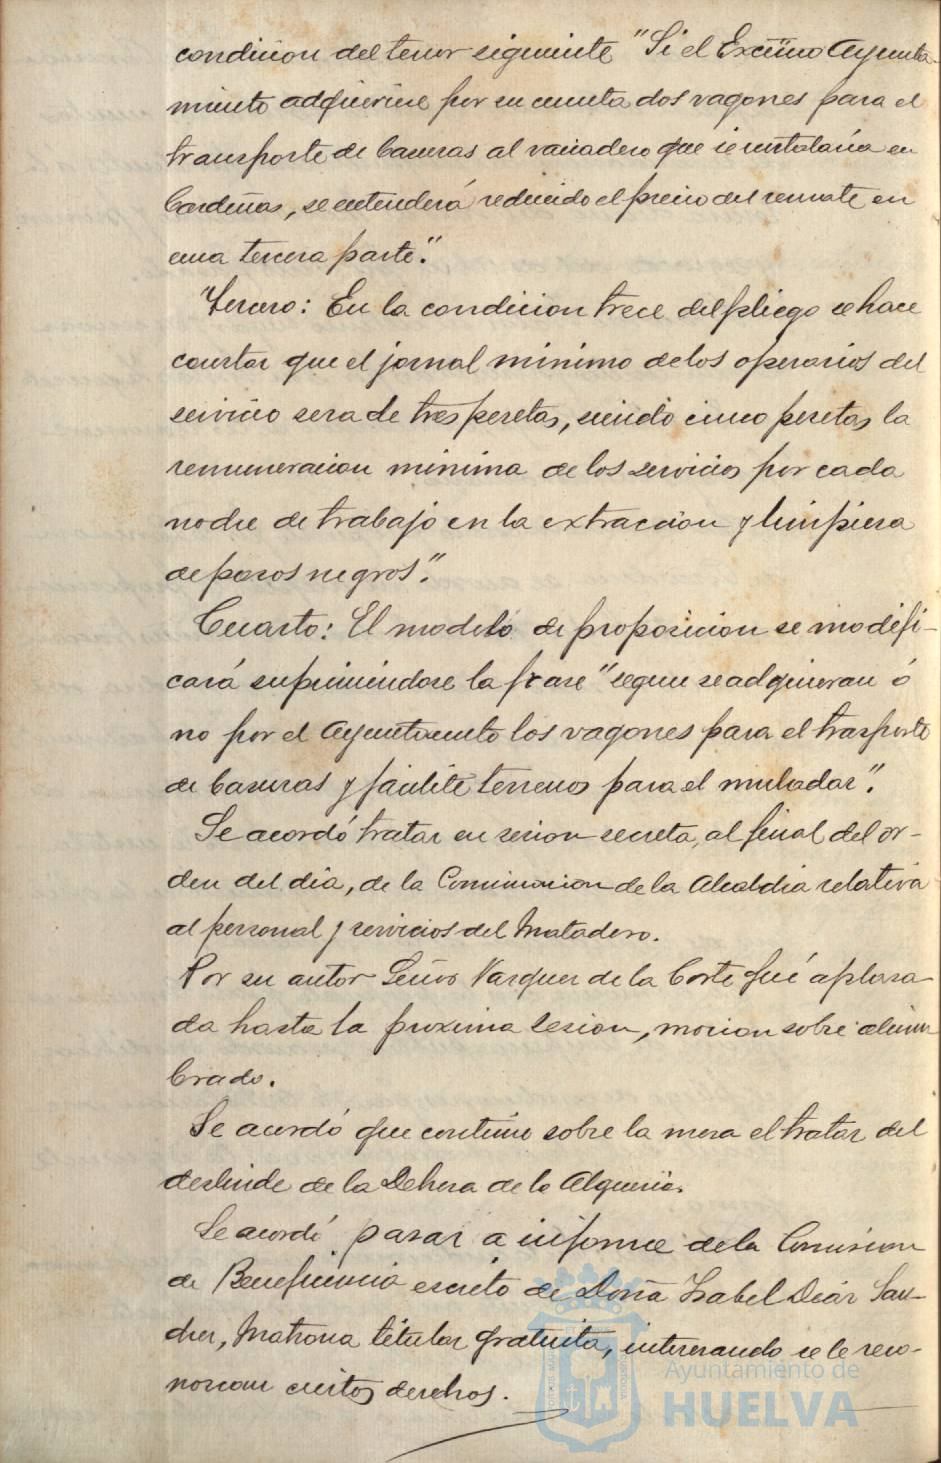 condicion del tenor siguiente "Si el Excmo Ayunta-
miento adquiriese por su cuenta dos vagones para el
transporte de basuras al vaciadero que se instalaría en
Cardeñas, se entenderá reducido el precio del remate en
una tercera parte".
Tercero: En la condicion trece del pliego se hace
constar que el jornal minimo de los operarios del
servicio sera de tres pesetas, siendo cinco pesetas la
remuneracion minima de los servicios por cada
noche de trabajo en la extraccion y limpiesa
de posos negros".
Cuarto: El modelo de proposicion se modifi-
cará suprimiendose la frase "segun se adquieran ó
no por el Ayuntamiento los vagones para el trasporte
de basuras y facilite terrenos para el muladar".
Se acordó tratar en sesion secreta, al final del or-
den del dia, de la Comunicacion de la Alcaldia relativa
al personal y servicios del Matadero.
Por su autor Señor Vazquez de la Corte fué aplasa-
da hasta la proxima sesion, mocion sobre alum
brado.
Se acordó que continue sobre la mesa el tratar del
deslinde de la Dehesa de la Alqueria.
Se acordó pasar a informe de la Comision
de Beneficencia escrito de Doña Isabel Diaz San-
chez, Matrona titular gratuita, interesando se le reco-
noscan ciertos derechos.
Ayuntamiento de
HUELVA